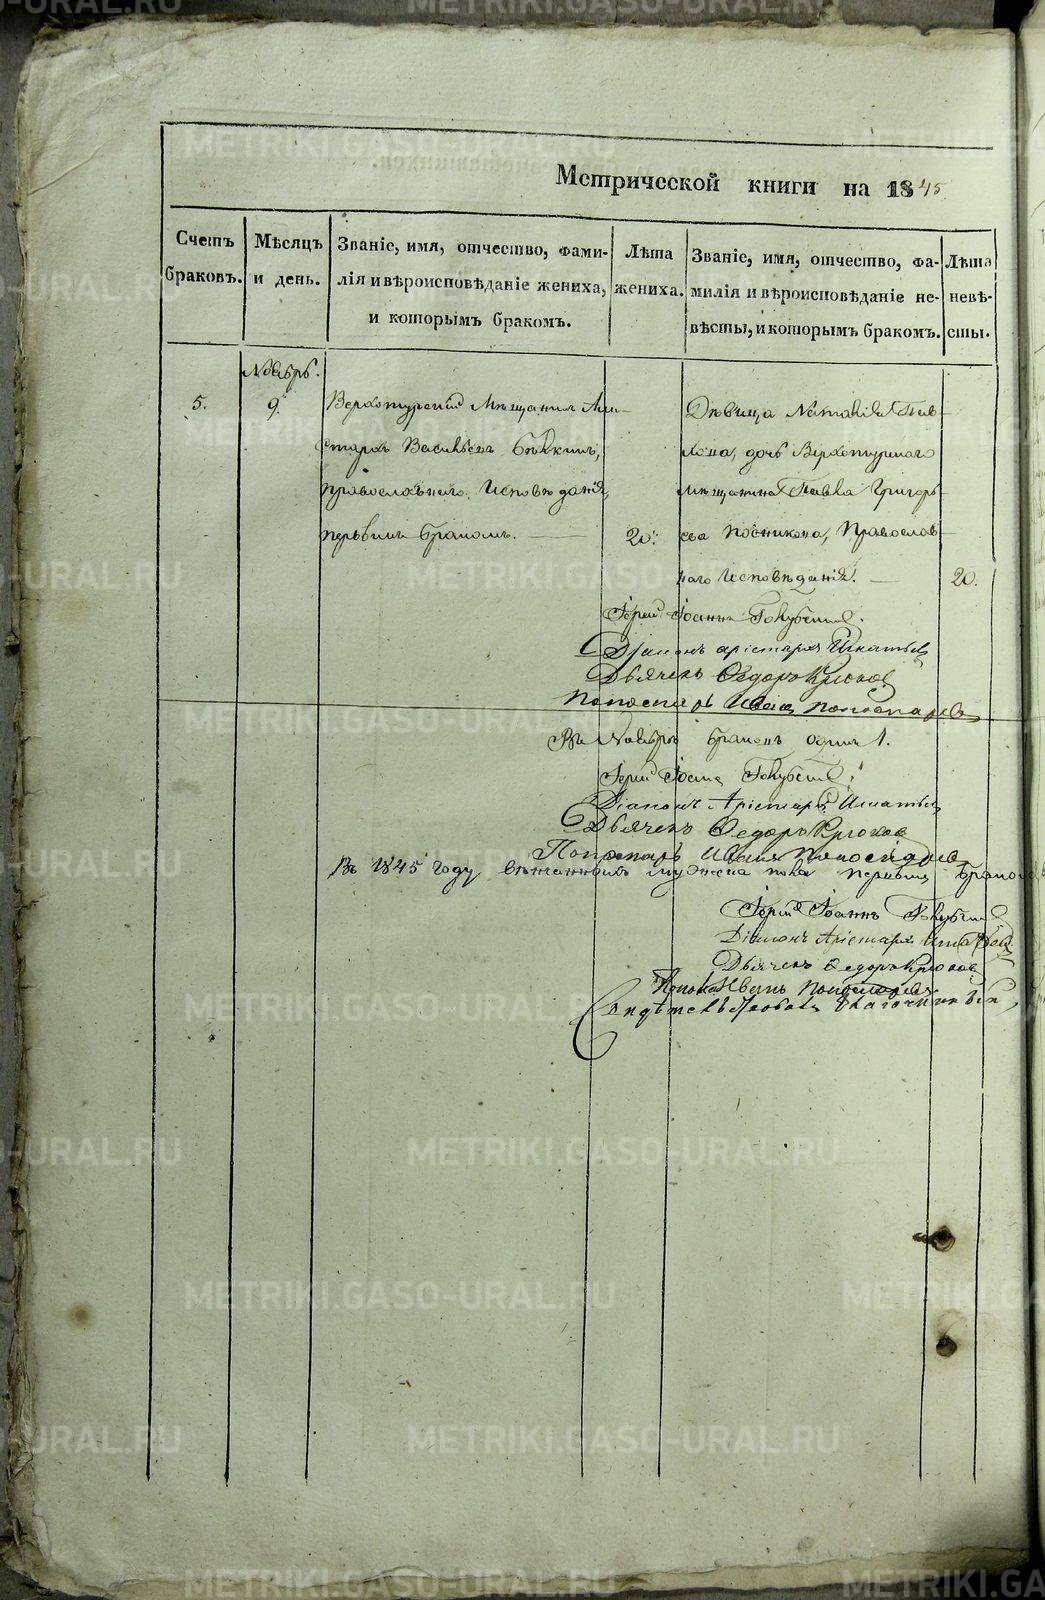 Метрической книги на 1845
Счетъ браковъ.
Мѣсяцъ и день.
Званіе, имя, отчество, фами-
лія и вѣроисповѣданіе жениха,
и которымъ бракомъ.
Лѣта
жениха.
Званіе, имя, отчество, фа-
милія и вѣроисповѣданіе не-
вѣсты, и которымъ бракомъ.
Лѣта
невѣ-
сты.
Ноябрь.
5.
9.
Верхотурскій Мѣщанинъ Ари-
стархъ Васильевъ
православнаго Исповѣданія,
первымъ бракомъ.
20.
Дѣвица Наталія Пав-
лова, дочь Верхотурскаго
мѣщанина Павла Григорь-
ева Посникова, Православ-
наго Исповѣданія.
20.
Іерей Іоаннъ
Діаконъ Арістархъ Игнатьев
Дьячекъ Ѳедоръ Крюков
Пономарь Иванъ Пономарев
Въ Ноябрѣ браковъ одинъ 1.
Іерей Іоаннъ
Діаконъ Арістархъ Игнатьев
Дьячекъ Ѳедоръ Крюков
Пономарь Иванъ Пономарев
Въ 1845 году вѣнчанныхъ мужеска пола первымъ бракомъ
Іерей Іоаннъ
Діаконъ Арістархъ Игнатьев
Дьячекъ Ѳедоръ Крюков
Иванъ Пономарев
Свидѣтельствовалъ Благочинный
METRIKI.GASO-URAL.RU